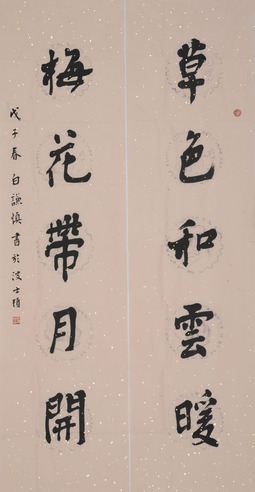 草色和雲暖
梅花帶月開
戊子春白謙慎書於波士頓